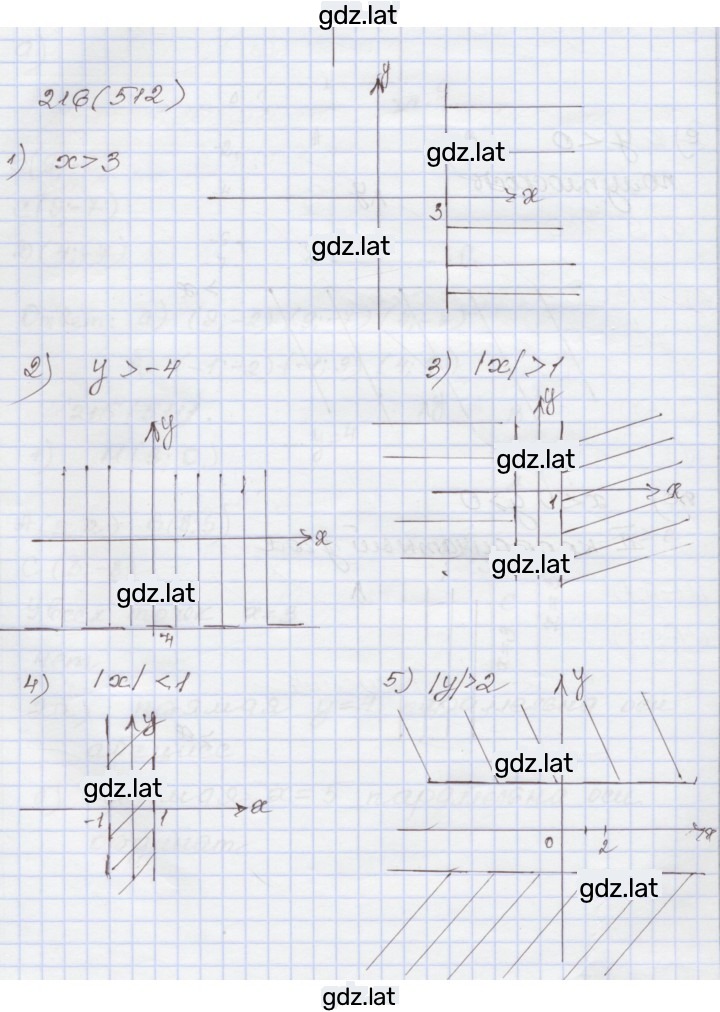 gdz.lat
216(512)
1) x>3
y
gdz.lat
x
3
gdz.lat
2) y>-4
3) |x|>1
y
y
gdz.lat
x
1
x
gdz.lat
gdz.lat
-4
4) |x|<1
5) |y|>2
y
y
gdz.lat
gdz.lat
-1
1
x
0
2
x
gdz.lat
gdz.lat